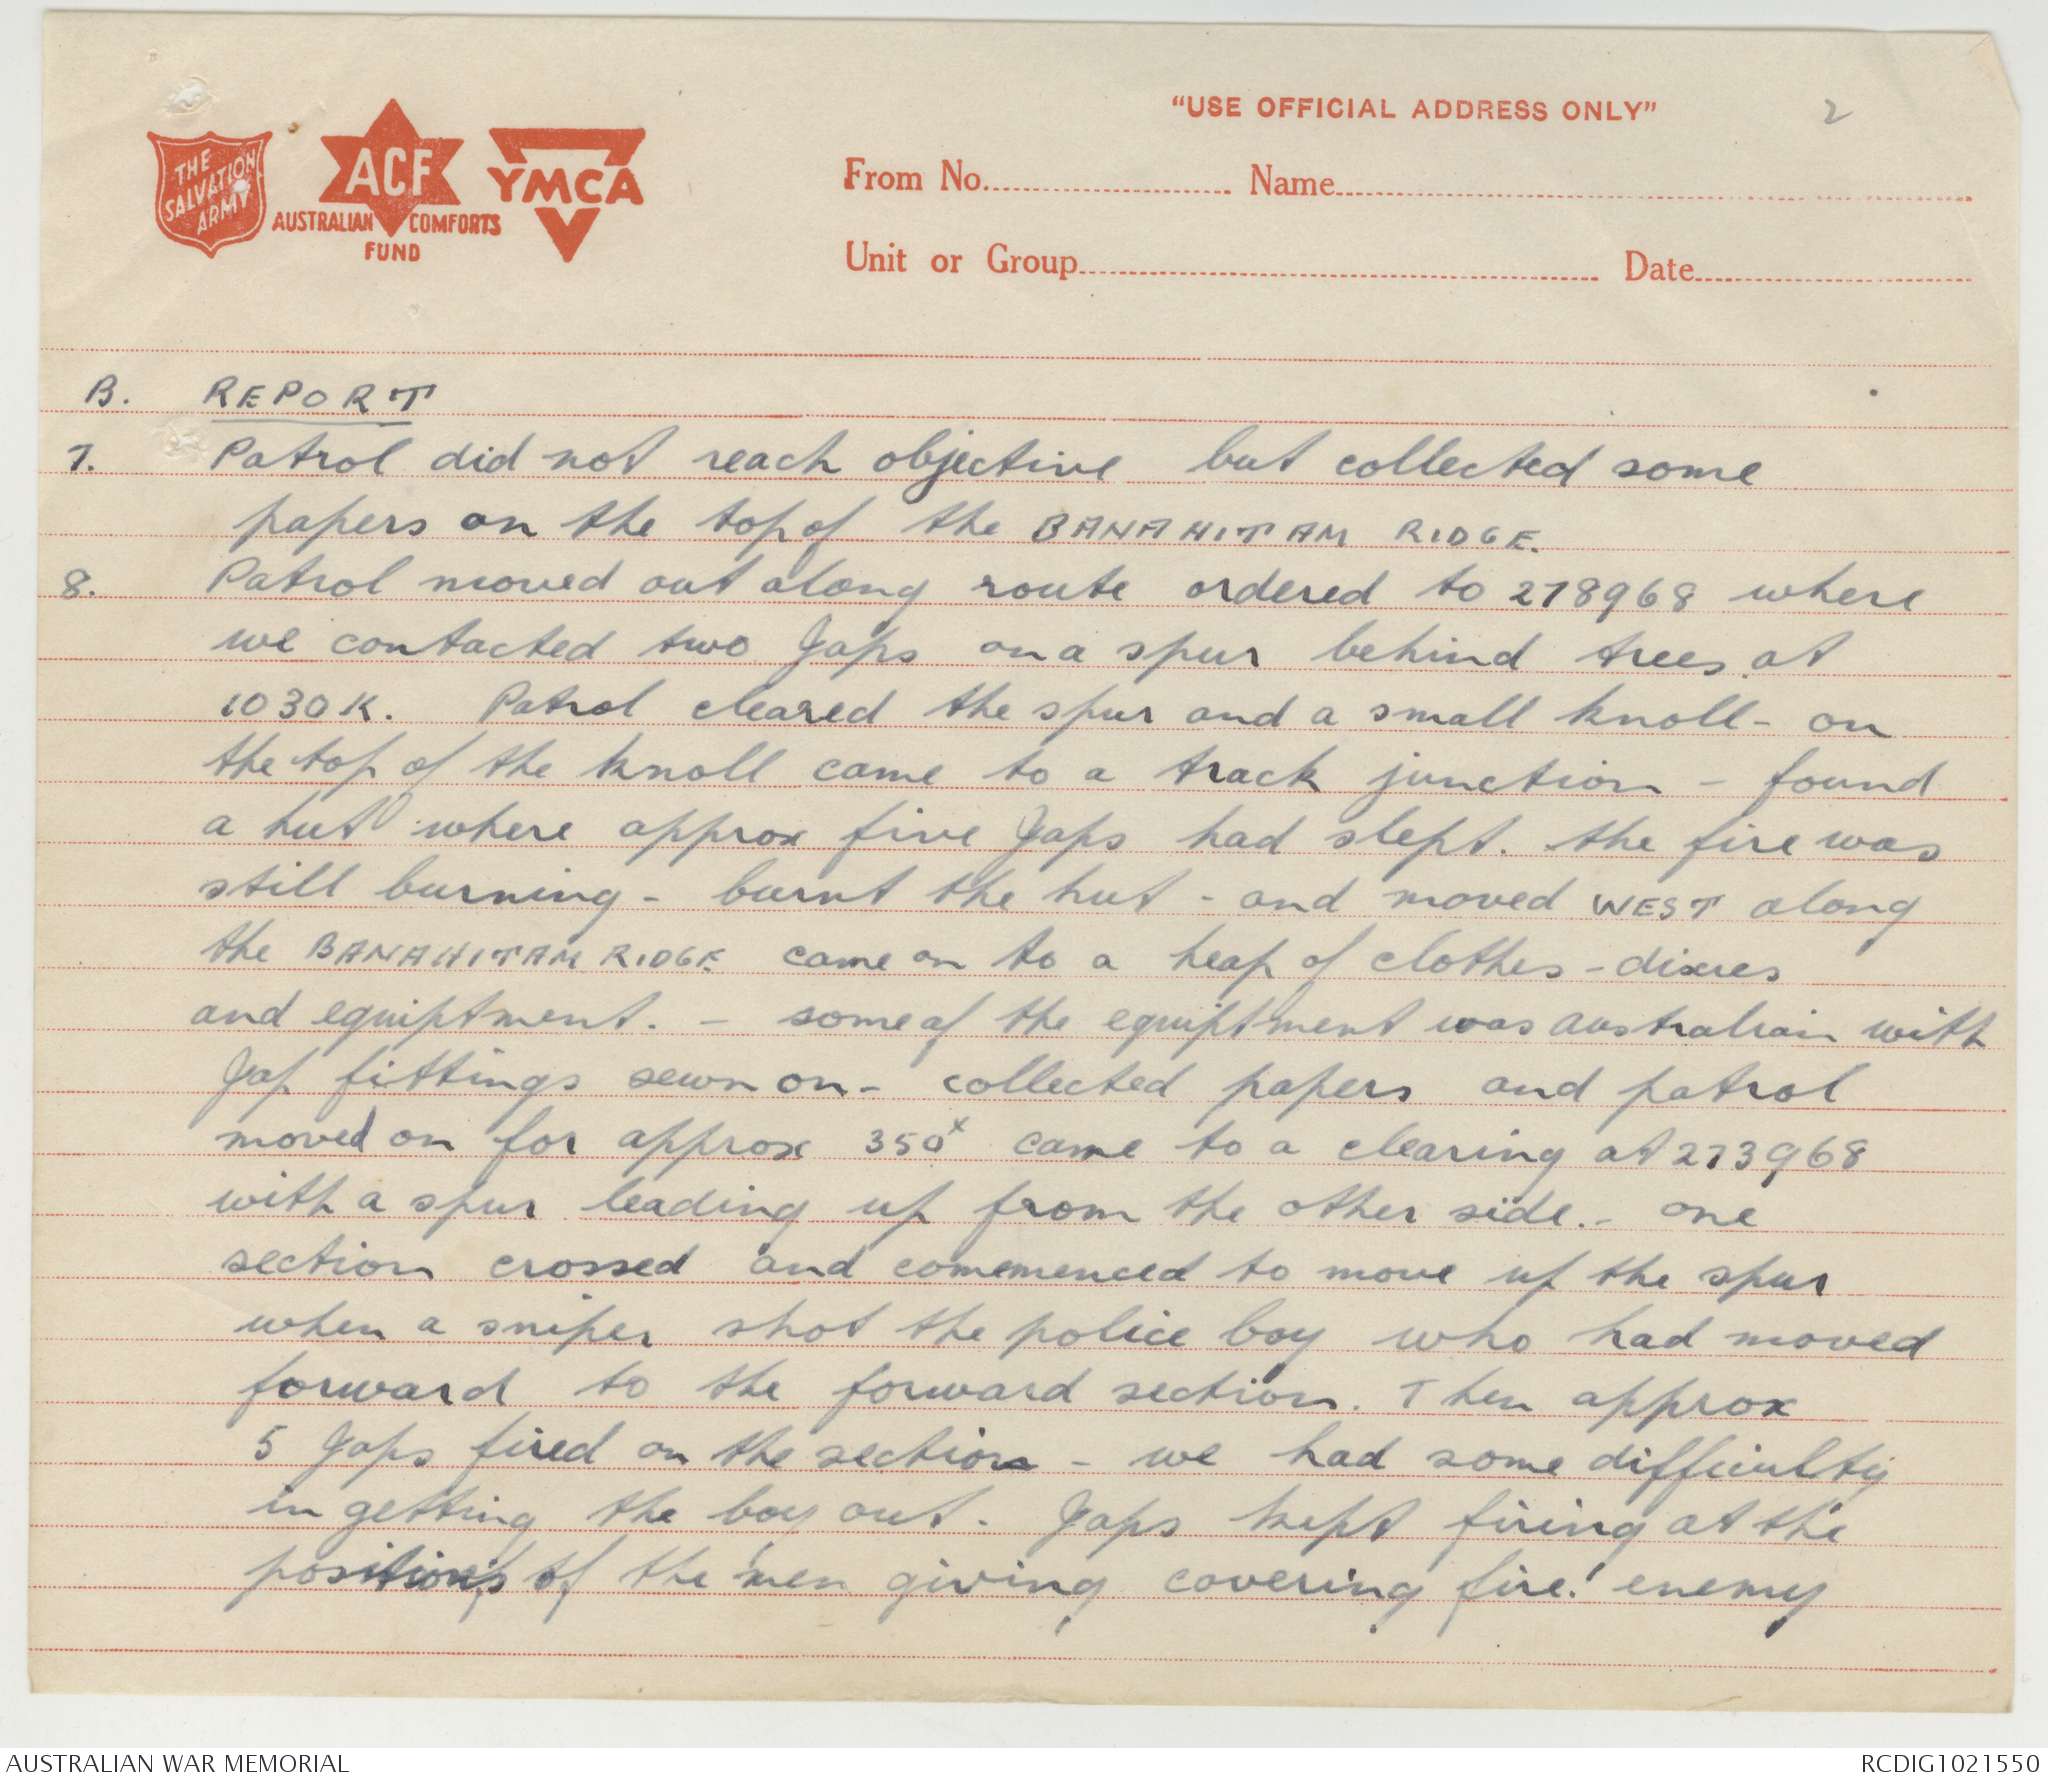 THE
SALVATION
ARMY
ACF
AUSTRALIAN COMFORTS
FUND
YMCA
"USE OFFICIAL ADDRESS ONLY"
2
From No.............. Name..............
Unit or Group.............. Date..............
B. REPORT
7. Patrol did not reach objective but collected some
papers on the top of the BANAHITAM RIDGE.
8. Patrol moved out along route ordered to 278968 where
we contacted two Japs on a spur behind trees at
1030K. Patrol cleared the spur and a small knoll - on
the top of the knoll came to a track junction - found
a hut where approx five Japs had slept. the fire was
still burning - burnt the hut - and moved WEST along
the BANAHITAM RIDGE. came on to a heap of clothes - dixies
and equiptment. - some of the equiptment was australian with
Jap fittings sewn on - collected papers and patrol
moved on for approx 350x came to a clearing at 273968
with a spur leading up from the other side. - one
section crossed and comemenced to move up the spur
when a sniper shot the police boy who had moved
forward to the forward section. Then approx
5 Japs fired on the section - we had some difficulty
in getting the boy out. Japs kept firing at the
positions of the men giving covering fire! enemy
AUSTRALIAN WAR MEMORIAL
RCDIG1021550